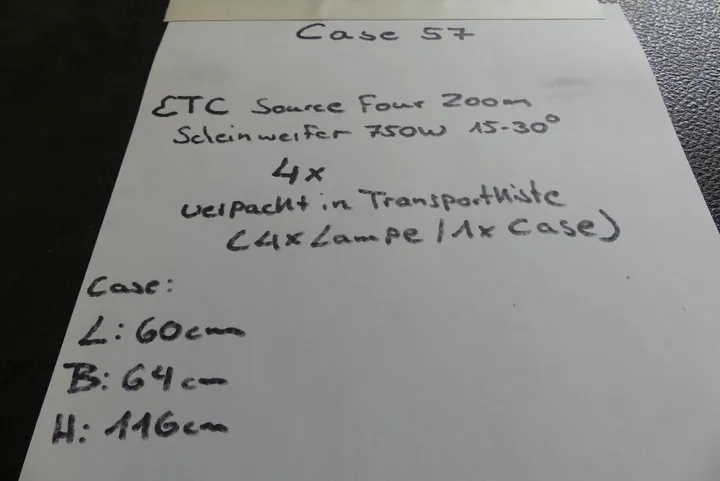 Case 57
ETC Source Four Zoom
Scheinwerfer 750W 15-30°
4x
verpackt in Transportkiste
(4x Lampe / 1x Case)
Case:
L: 60cm
B: 64cm
H: 116cm